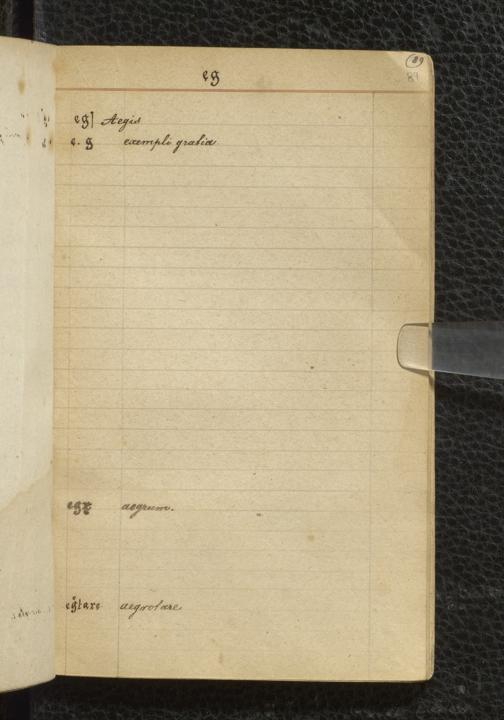 89
89
eg
eg] Aegis
e. g exempli gratia
egꝝ aegrum.
egtare aegrotare